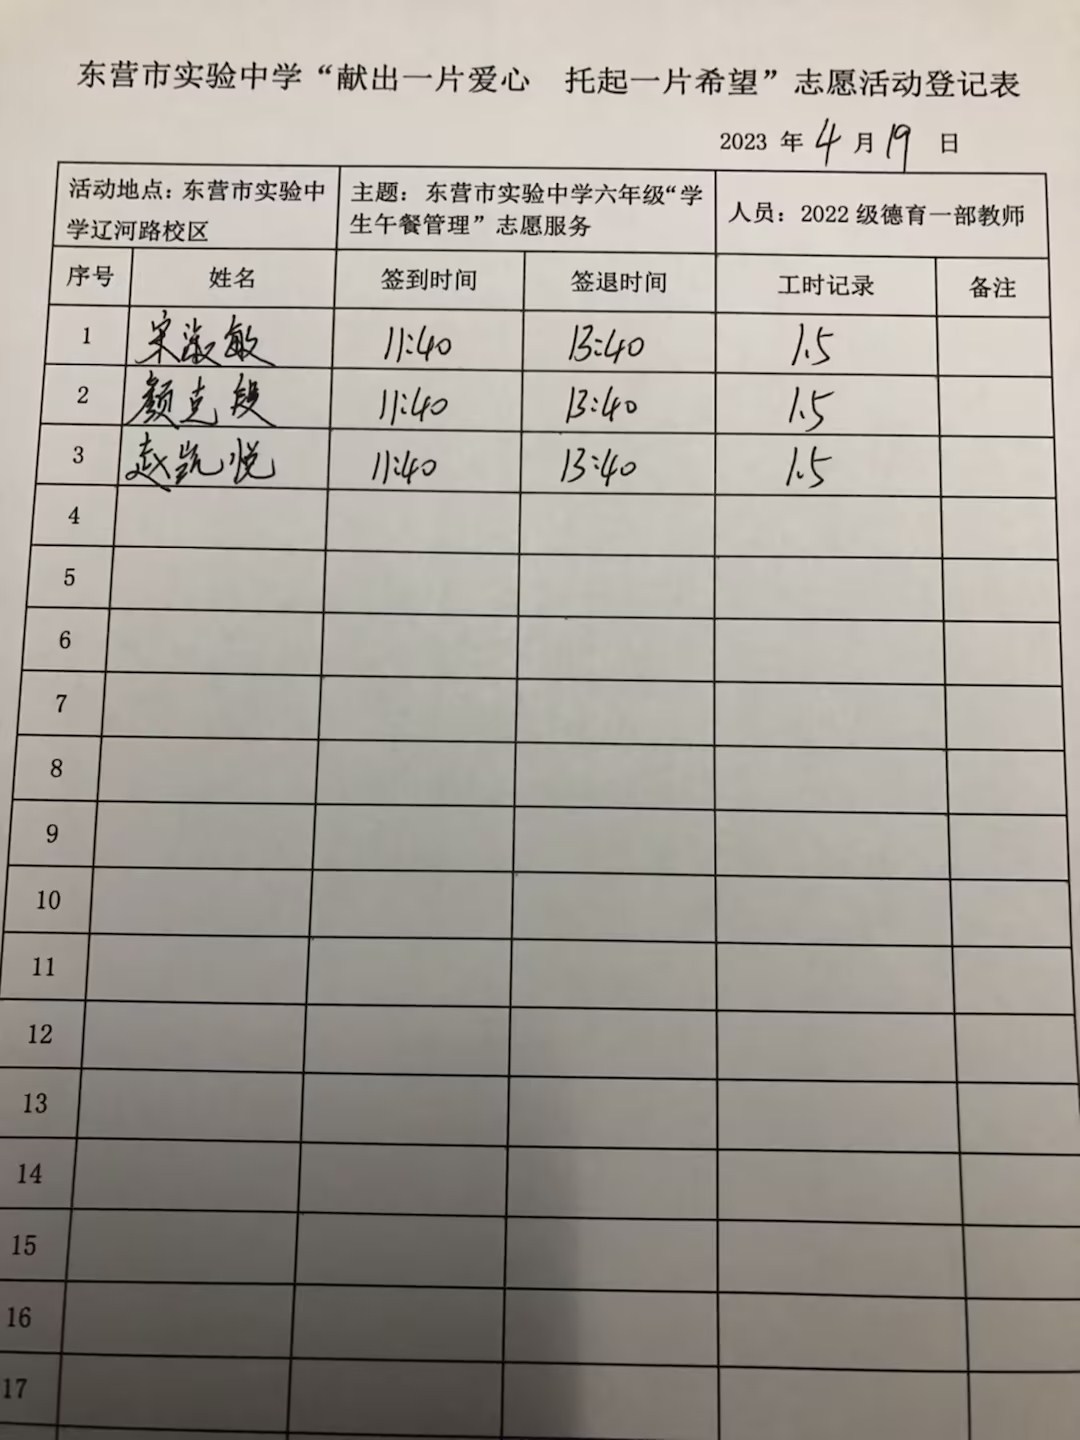 东营市实验中学“献出一片爱心 托起一片希望”志愿活动登记表
2023 年 4 月 19 日
活动地点：东营市实验中
学辽河路校区
主题：东营市实验中学六年级“学
生午餐管理”志愿服务
人员：2022 级德育一部教师
序号 姓名 签到时间 签退时间 工时记录 备注
1 宋淑敏 11:40 13:40 1.5
2 颜克段 11:40 13:40 1.5
3 赵凯悦 11:40 13:40 1.5
4
5
6
7
8
9
10
11
12
13
14
15
16
17